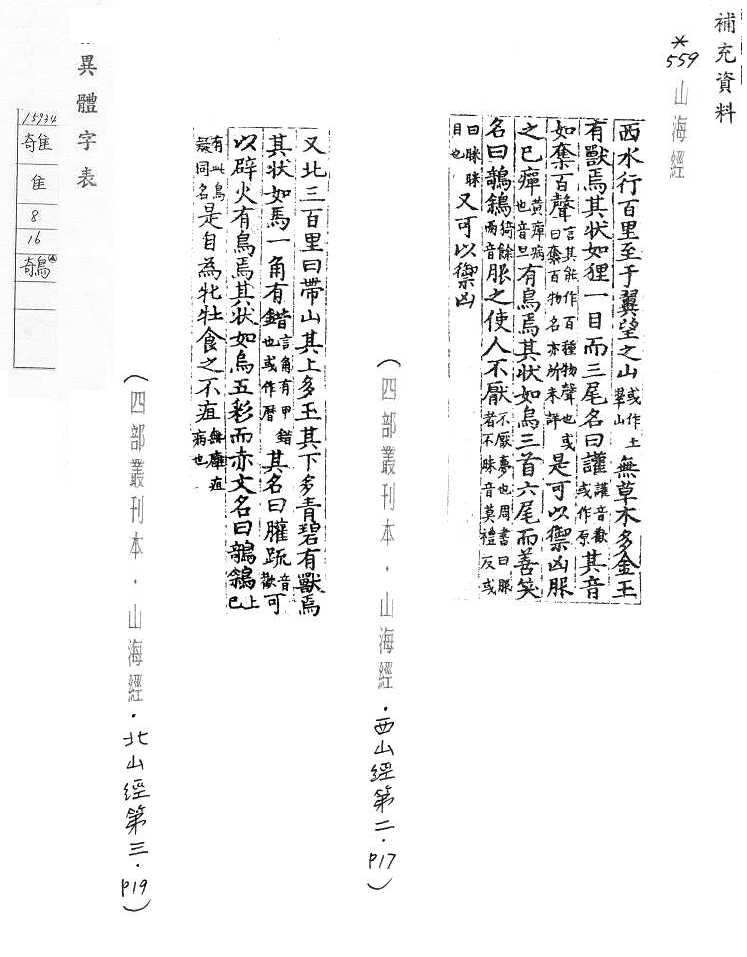 補充資料
*559 山海經
西水行百里至于翼望之山或作土翠山無草木多金玉
有獸焉其状如狸一目而三尾名曰讙讙音歡或作原其音
如奪百聲言其能作百種物聲也或曰奪百物名亦所未詳是可以禦凶服
之已癉黃癉病也音旦有鳥焉其状如烏三首六尾而善笑
名曰鵸鵌猗餘兩音服之使人不厭不厭夢也周書曰服者不昧音莫禮反或
曰眯眯目也又可以禦凶
(四部叢刊本．山海經．西山經第二．P17)
又北三百里曰帶山其上多玉其下多青碧有獸焉
其状如馬一角有錯言角有甲錯也或作厝其名曰䑏疏音歡可
以辟火有鳥焉其状如烏五彩而赤文名曰鵸鵌上已
有此鳥疑同名是自為牝牡食之不疽無癰疽病也
(四部叢刊本．山海經．北山經第三．P19)
異體字表
15934
隹
8
16
鵸